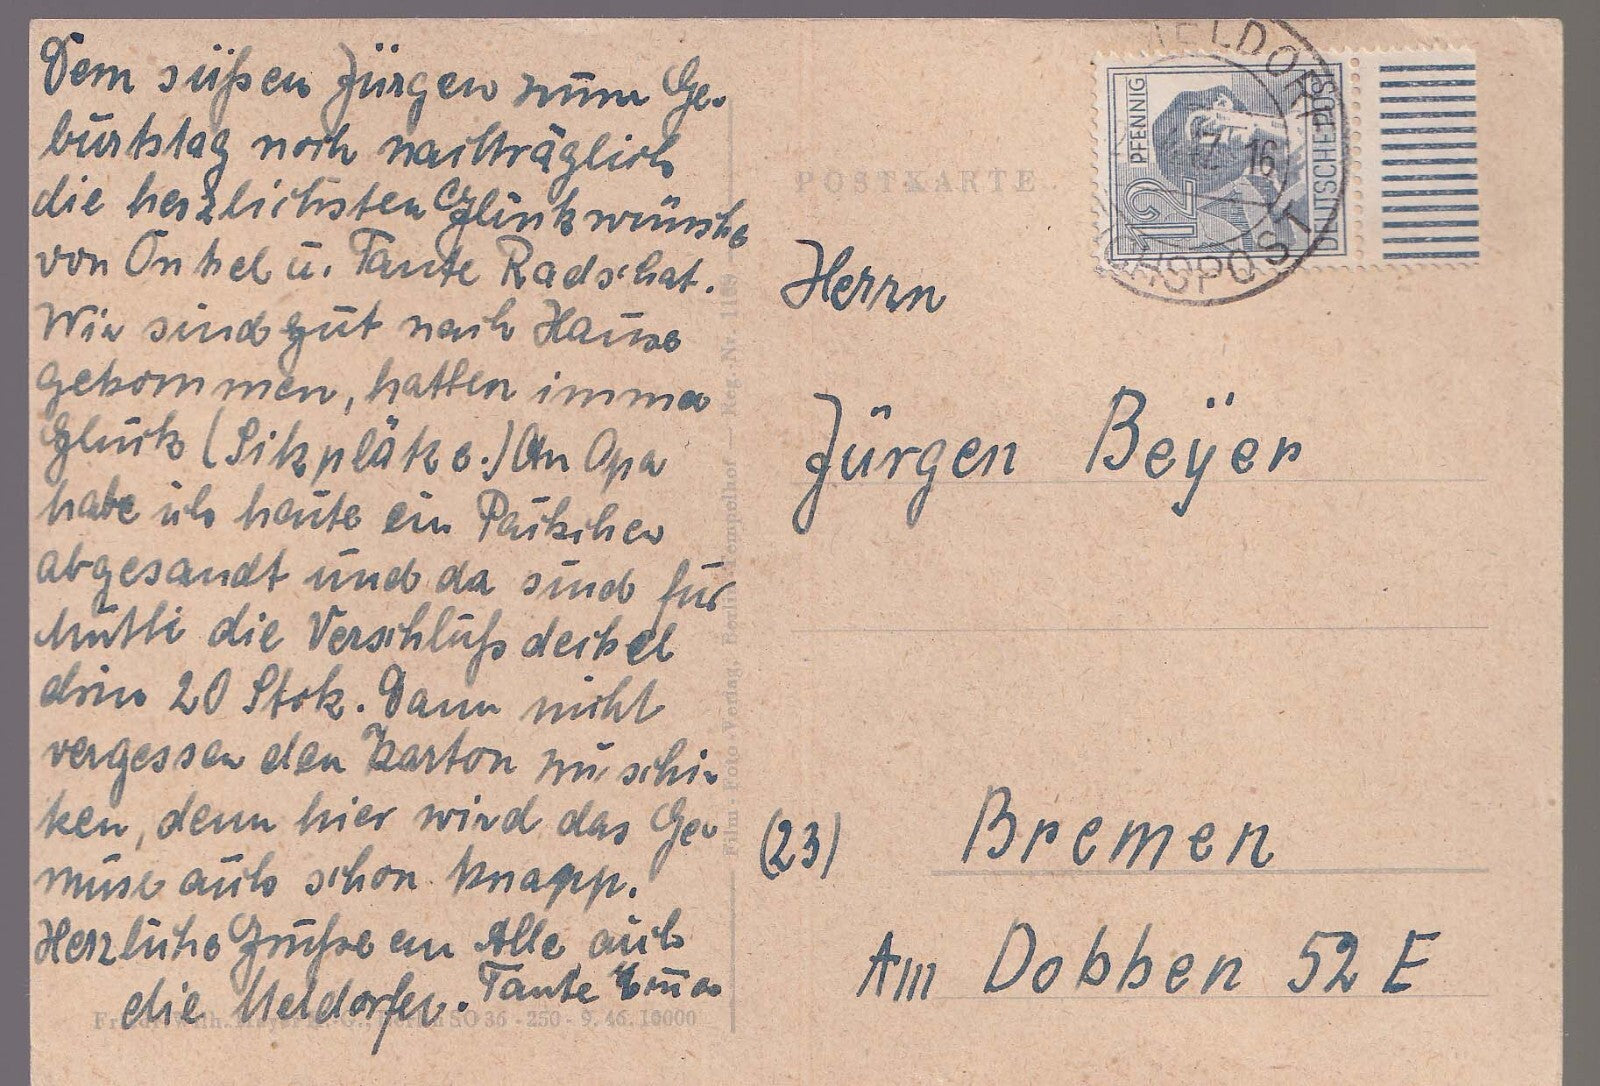 Dem süßen Jürgen zum Ge-
burtstag noch nachträglich
die herzlichsten Glückwünsche
von Onkel u. Tante Radschat.
Wir sind gut nach Hause
gekommen, hatten immer
Glück (Sitzplätze.) An Opa
habe ich heute ein Päckchen
abgesandt und da sind für
Mutti die Verschlußdeckel
drin 20 Stck. Dann nicht
vergessen den Karton zu schi-
cken, denn hier wird das Ge-
müse auch schon knapp.
Herzliche Grüße an Alle auch
die Meldorfer. Tante
Friedr. Wilh. Berlin SO 36 - 250 - 9. 46. 10000
Film-Foto-Verlag, Berlin-Tempelhof — Reg.-Nr. 1169
POSTKARTE
12 PFENNIG
DEUTSCHE POST
MELDORF
16
Herrn
Jürgen Beÿer
(23) Bremen
Am Dobben 52 E